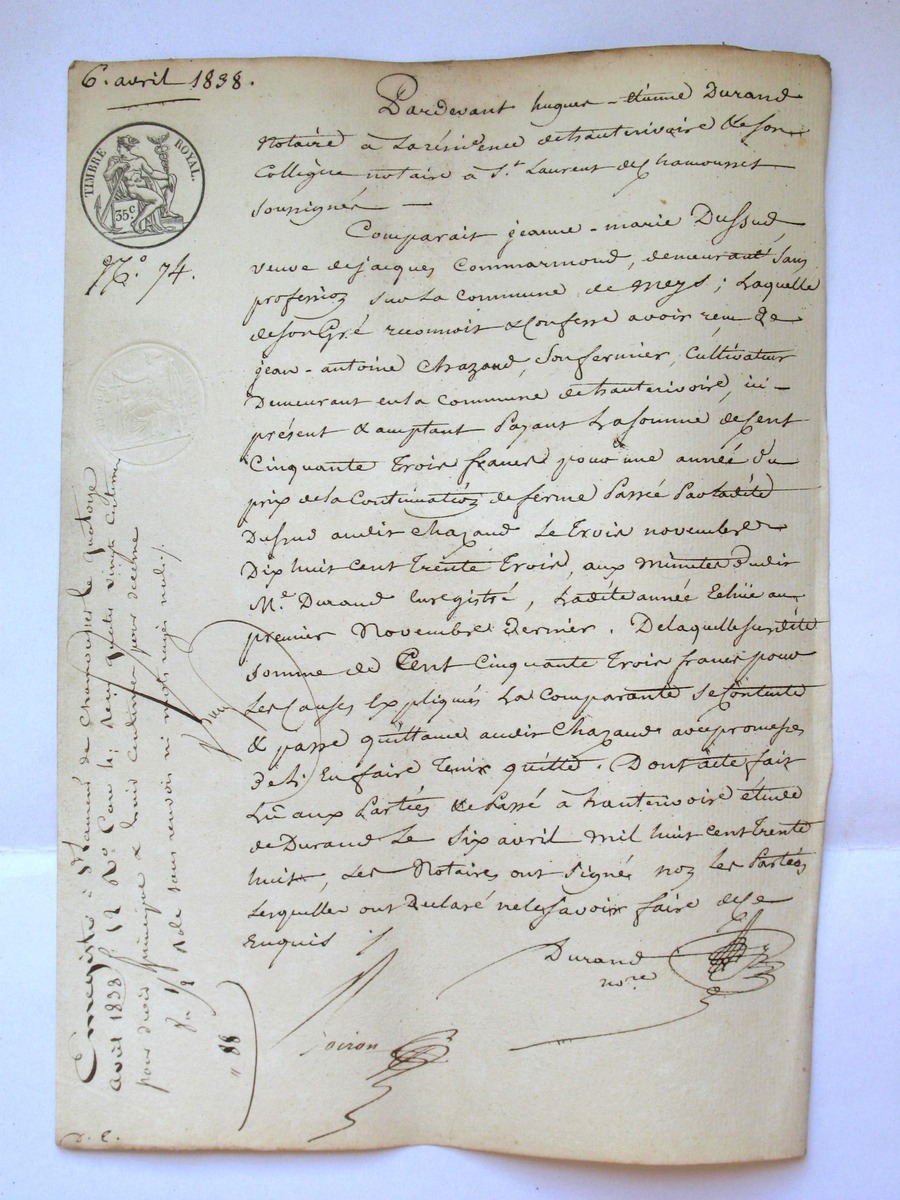 6. avril 1838.
TIMBRE ROYAL.
35 c
N.° 74.
Pardevant hugues-étienne Durand
Notaire à La résidence de hauterivoire & Son
Collègue notaire à S.t Laurent de Chamousset
soussignés —
Comparait jeanne-marie Dussud,
veuve de jacques Commarmond, demeurant Sans
profession sur La Commune de meys ; Laquelle
de son Gré reconnoit & Confesse avoir reçu de
jean-antoine Chazaud, Son fermier, Cultivateur
Demeurant en La Commune de hauterivoire, ici-
présent & acceptant Payant La Somme de Cent
Cinquante trois francs pour une année du
prix de La Continuation de ferme Passé Par Ladite
Dussud audit Chazaud Le trois novembre
Dix huit cent trente trois, aux minutes dudit
M.e Durand Enregistré, Ladite année Echüe au
premier Novembre Dernier. De laquelle susdite
somme de Cent Cinquante trois francs pour
Les Causes Expliqués La Comparante se Contente
& passe quittance audit Chazaud avec promesse
de L'En faire tenir quitte. Dont acte fait
Lu aux Parties & Passé à hauterivoire étude
de Durand Le Six avril mil huit cent trente
huit, Les Notaires ont Signé non Les Parties
Lesquelles ont Déclaré ne le Savoir faire de ce
Enquis
Durand
nore
Enregistré à St Laurent de Chamousset le quatorze
avril 1838 f.° 12 R.°
pour droit principal & huit centimes pour décime
sans renvoi ni mot rayé nul
88
D. C.